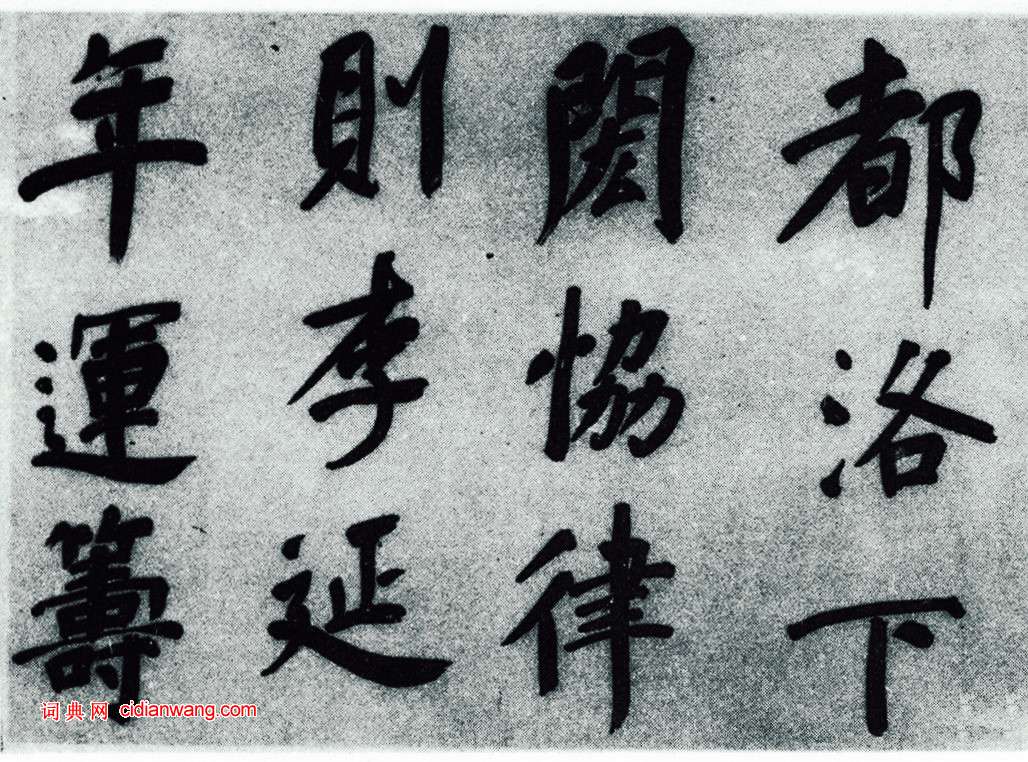 都洛下
閎恊律
則李延
年運籌
词典网 cidianwang.com